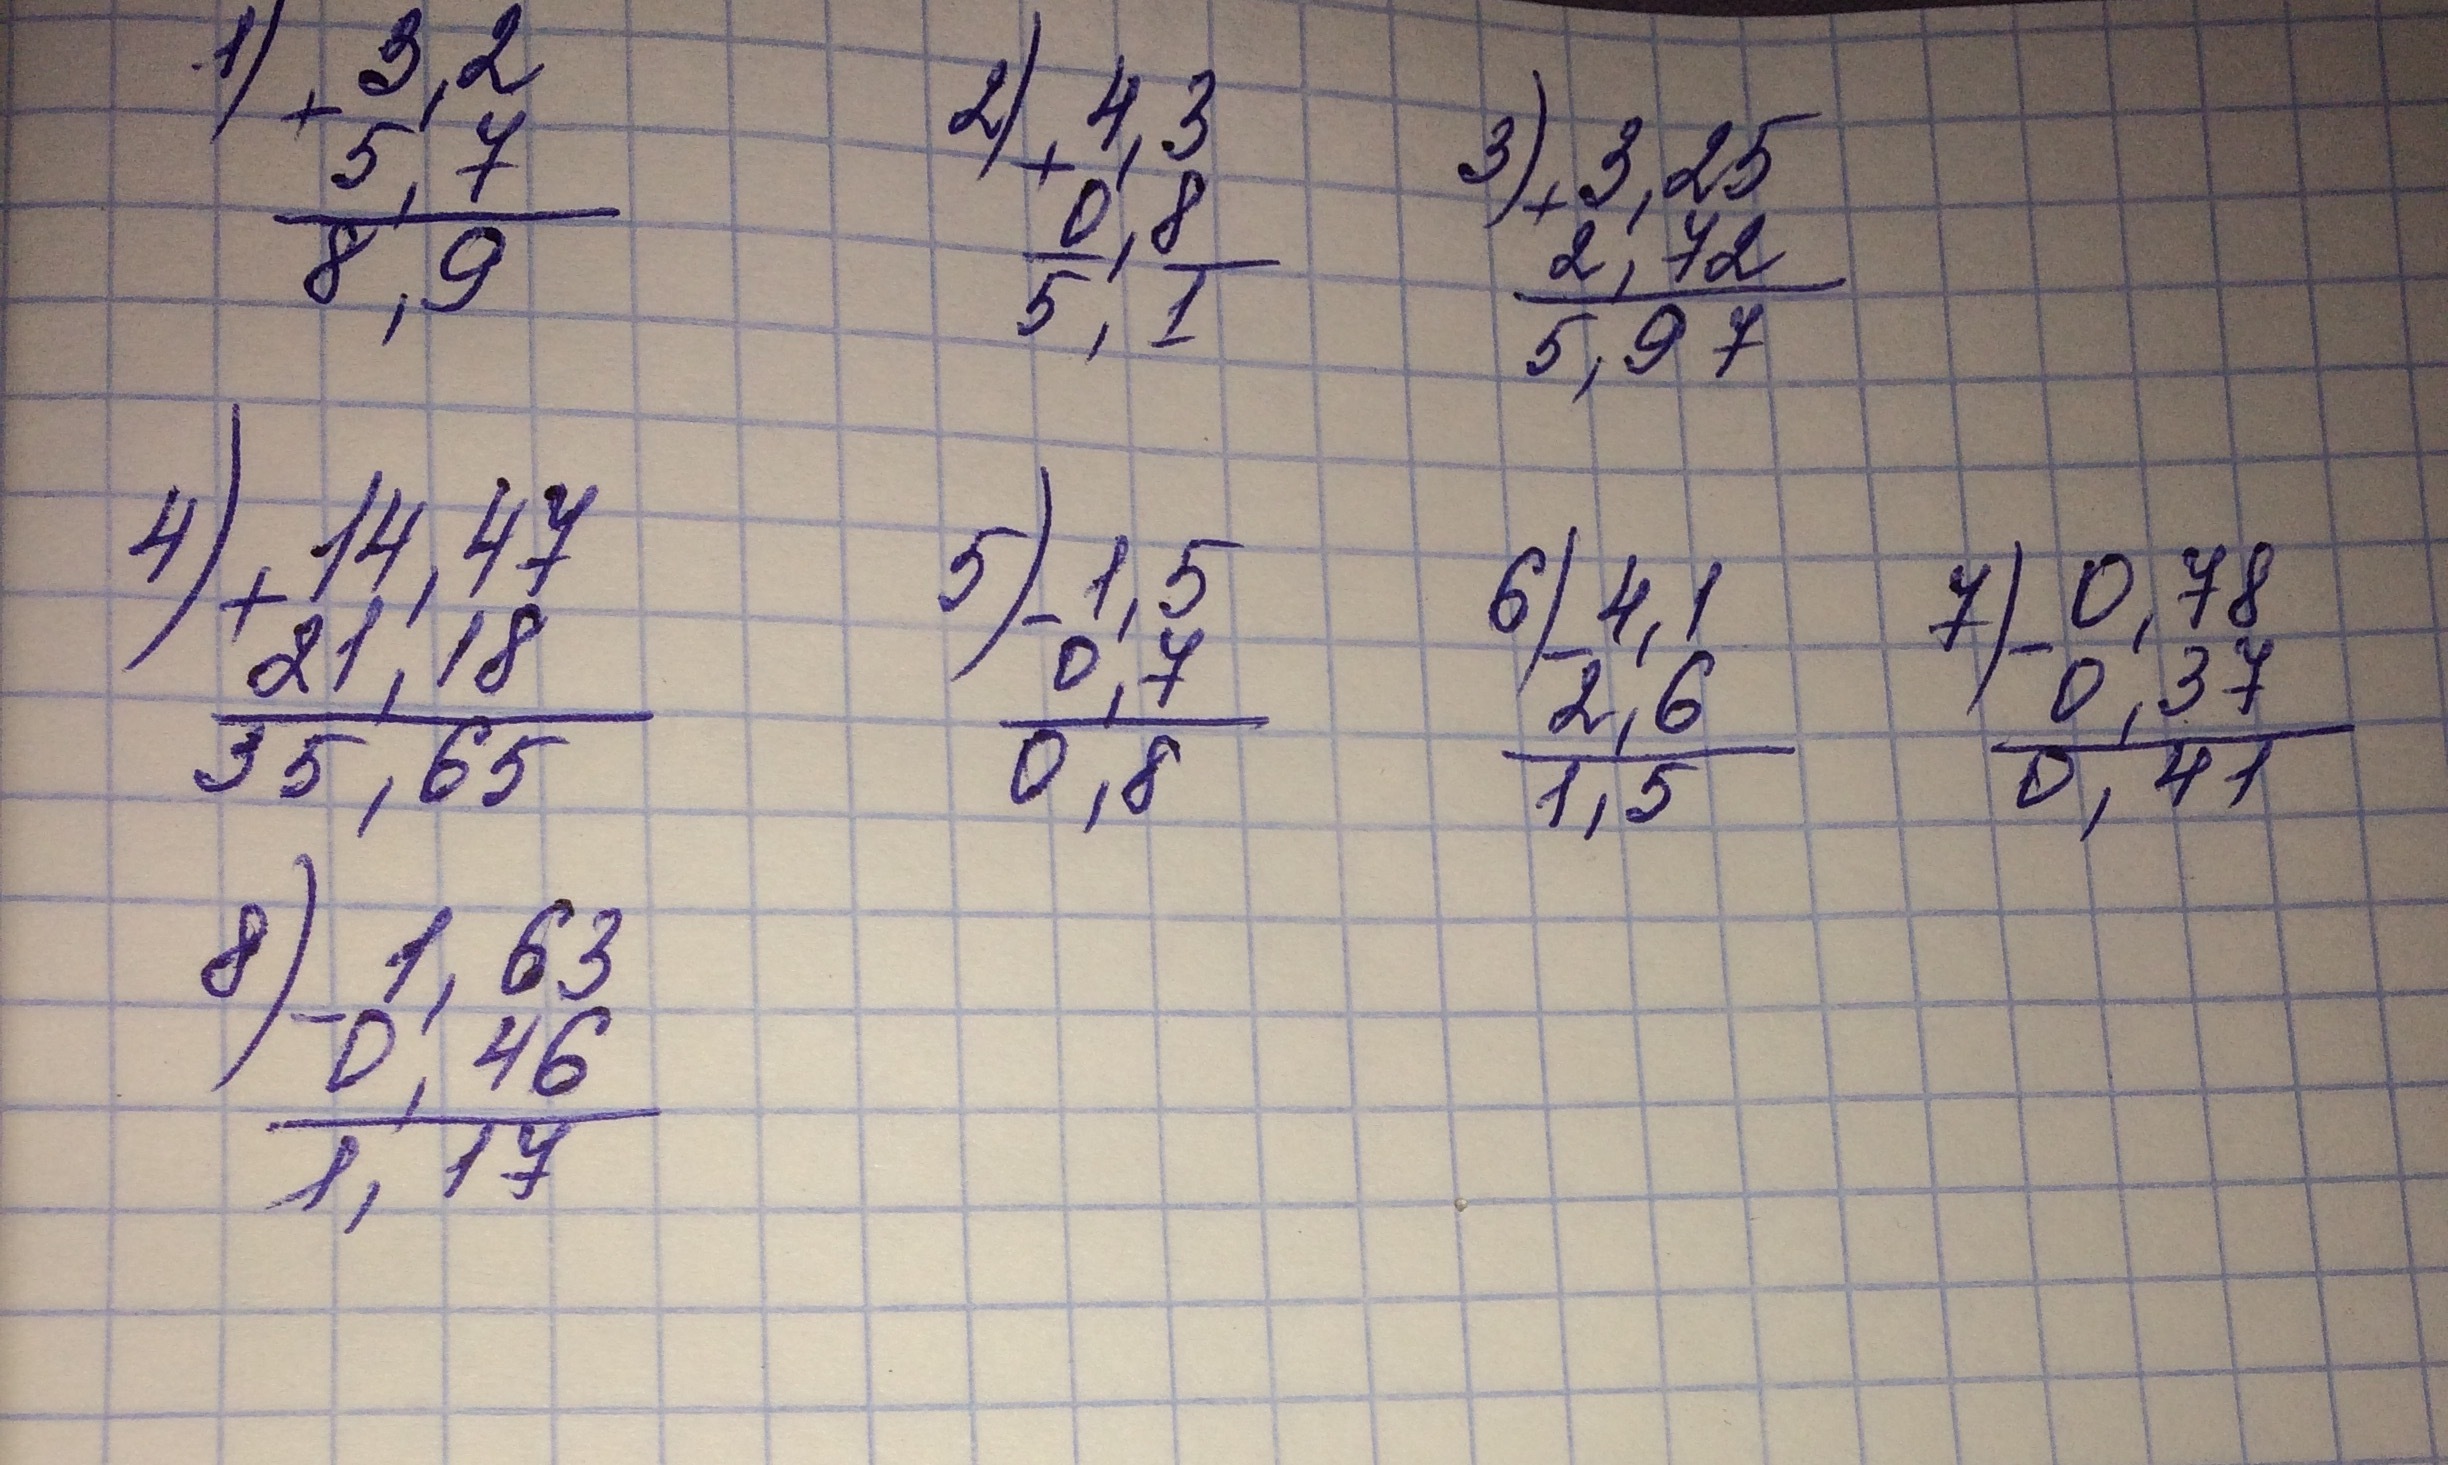 1) + 3,2
5,7
8,9
2) + 4,3
0,8
5,1
3) + 3,25
2,72
5,97
4) + 14,47
21,18
35,65
5) - 1,5
0,7
0,8
6) - 4,1
2,6
1,5
7) - 0,78
0,37
0,41
8) - 1,63
0,46
1,17